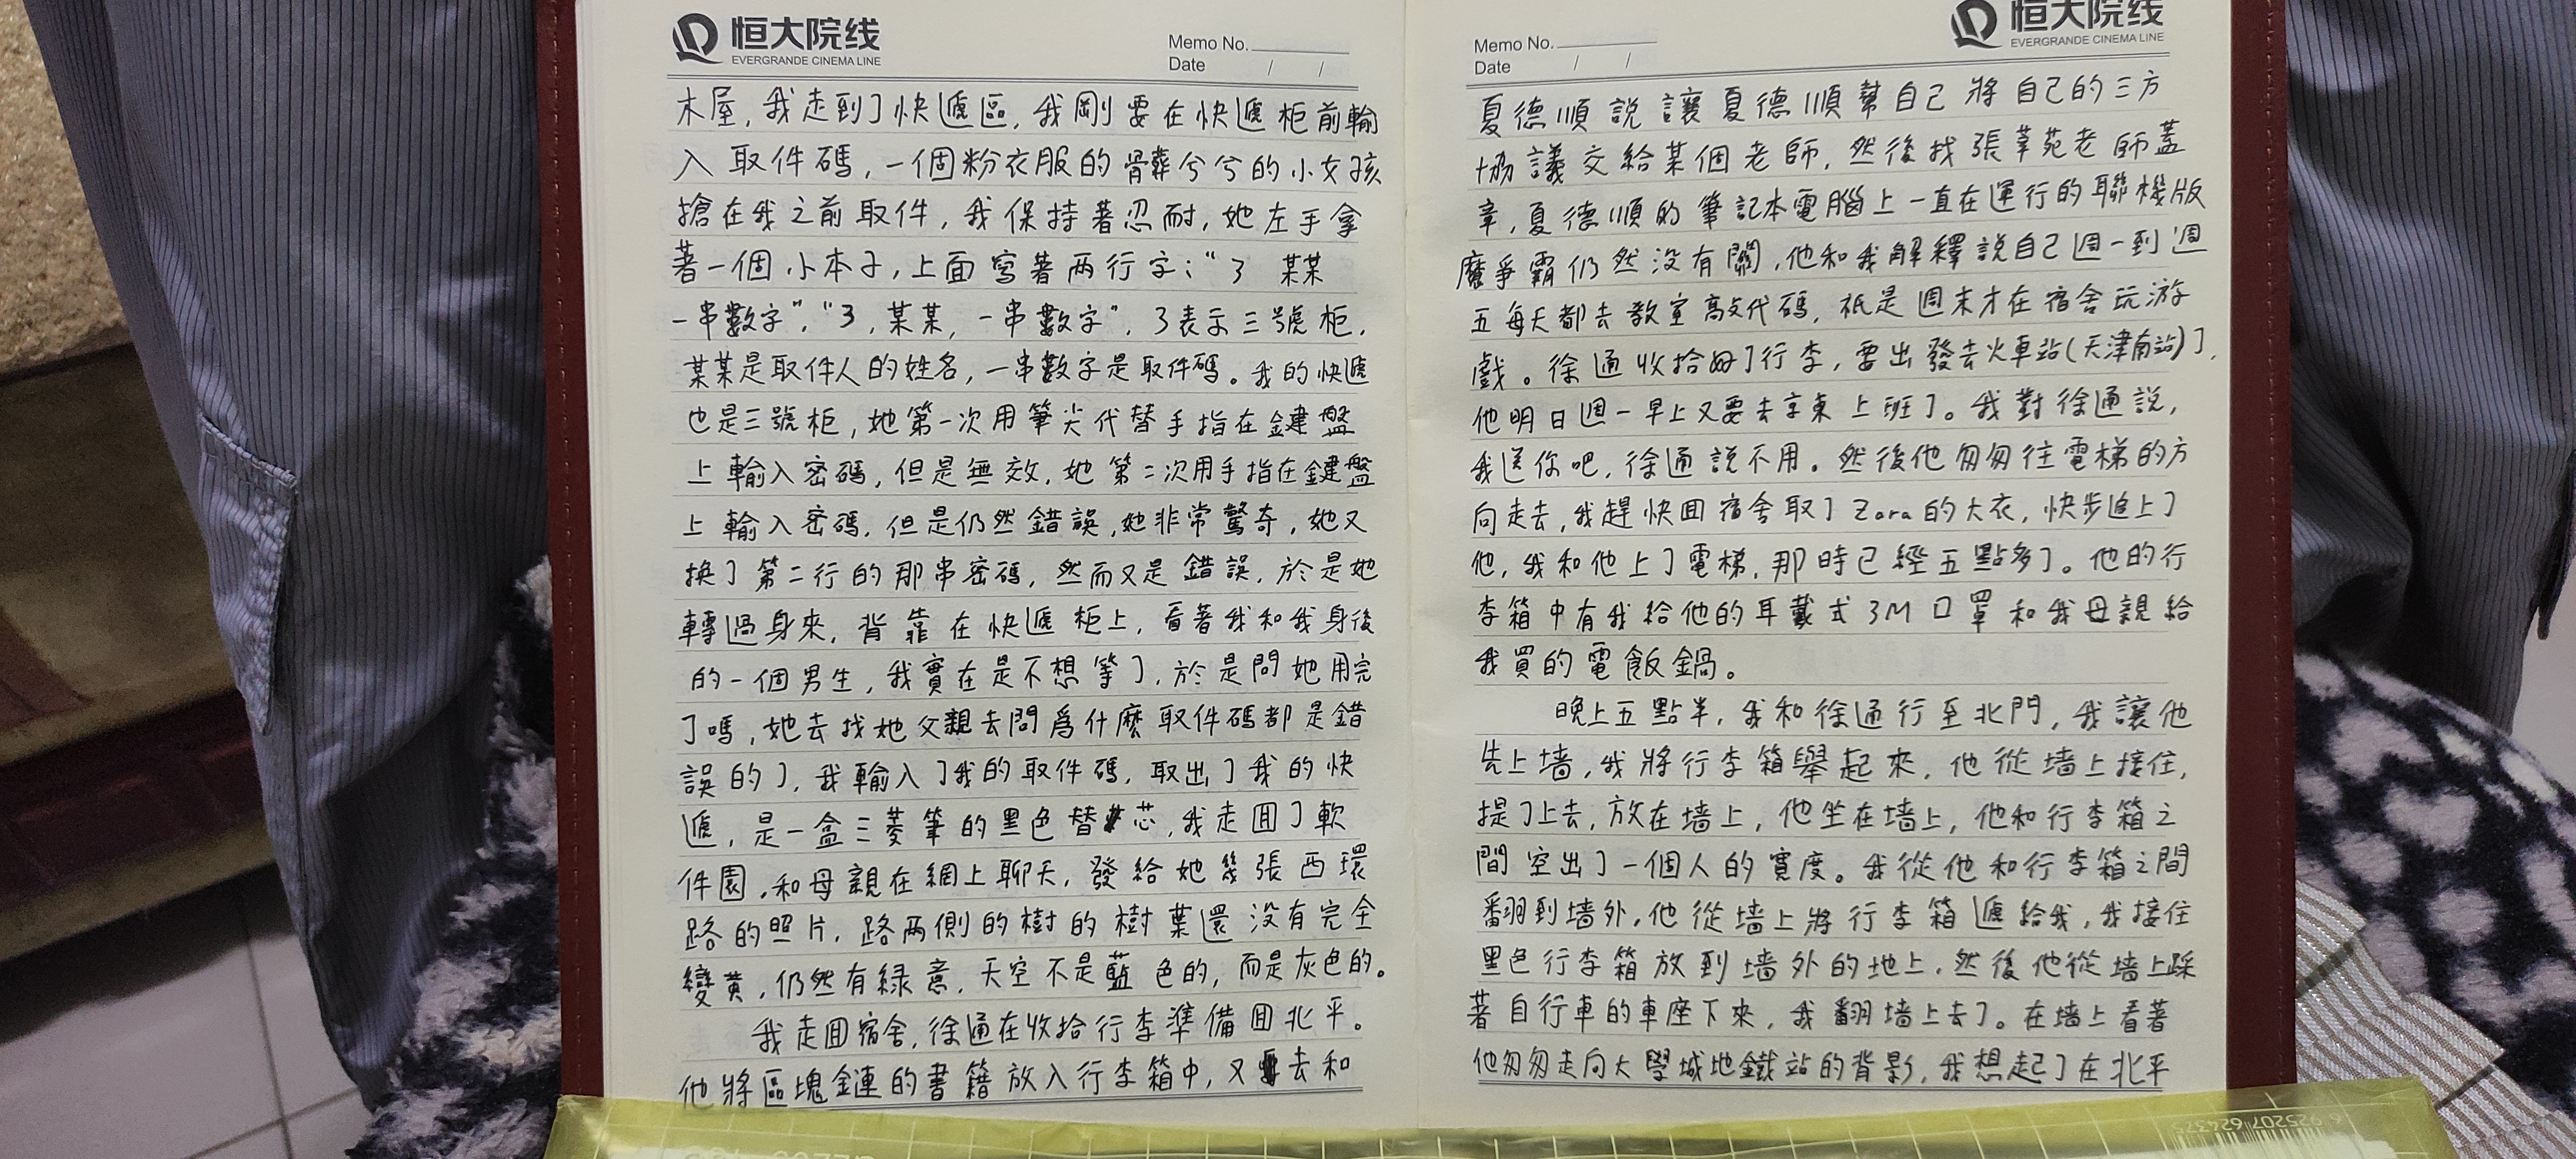 恒大院线
EVERGRANDE CINEMA LINE
Memo No.
Date / /
木屋，我走到了快遞區，我剛要在快遞柜前輸
入取件碼，一個粉衣服的髒兮兮的小女孩
搶在我之前取件，我保持著忍耐，她左手拿
著一個小本子，上面寫著兩行字：“3 某某
一串數字”，“3，某某，一串數字”，3表示三號柜，
某某是取件人的姓名，一串數字是取件碼。我的快遞
也是三號柜，她第一次用筆尖代替手指在鍵盤
上輸入密碼，但是無效，她第二次用手指在鍵盤
上輸入密碼，但是仍然錯誤，她非常驚奇，她又
換了第二行的那串密碼，然而又是錯誤，於是她
轉過身來，背靠在快遞柜上，看著我和我身後
的一個男生，我實在是不想等了，於是問她用完
了嗎，她去找她父親去問爲什麼取件碼都是錯
誤的了，我輸入了我的取件碼，取出了我的快
遞，是一盒三菱筆的黑色替芯，我走回了軟
件園，和母親在網上聊天，發給她幾張西環
路的照片，路兩側的樹的樹葉還沒有完全
變黃，仍然有綠意，天空不是藍色的，而是灰色的。
我走回宿舍，徐通在收拾行李準備回北平。
他將區塊鏈的書籍放入行李箱中，又要去和
Memo No.
Date / /
恒大院线
EVERGRANDE CINEMA LINE
夏德順說讓夏德順幫自己將自己的三方
協議交給某個老師，然後找張莘苑老師蓋
章，夏德順的筆記本電腦上一直在運行的聯機版
魔爭霸仍然沒有關，他和我解釋說自己週一到週
五每天都去教室敲代碼，祇是週末才在宿舍玩游
戲。徐通收拾好了行李，要出發去火車站(天津南站)了，
他明日週一早上又要去京東上班了。我對徐通說，
我送你吧，徐通說不用。然後他匆匆往電梯的方
向走去，我趕快回宿舍取了Zara的大衣，快步追上了
他，我和他上了電梯，那時已經五點多了。他的行
李箱中有我給他的耳戴式3M口罩和我母親給
我買的電飯鍋。
晚上五點半，我和徐通行至北門，我讓他
先上墙，我將行李箱舉起來，他從墙上接住，
提了上去，放在墙上，他坐在墙上，他和行李箱之
間空出了一個人的寬度。我從他和行李箱之間
翻到墙外，他從墙上將行李箱遞給我，我接住
黑色行李箱放到墙外的地上，然後他從墙上踩
著自行車的車座下來，我翻墙上去了。在墙上看著
他匆匆走向大學城地鐵站的背影，我想起了在北平
6 925207 624375